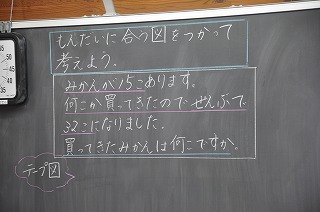 もんだいに合う図をつかって
考えよう。
みかんが15こあります。
何こか買ってきたので ぜんぶで
32こになりました。
買ってきたみかんは何こですか。
テープ図